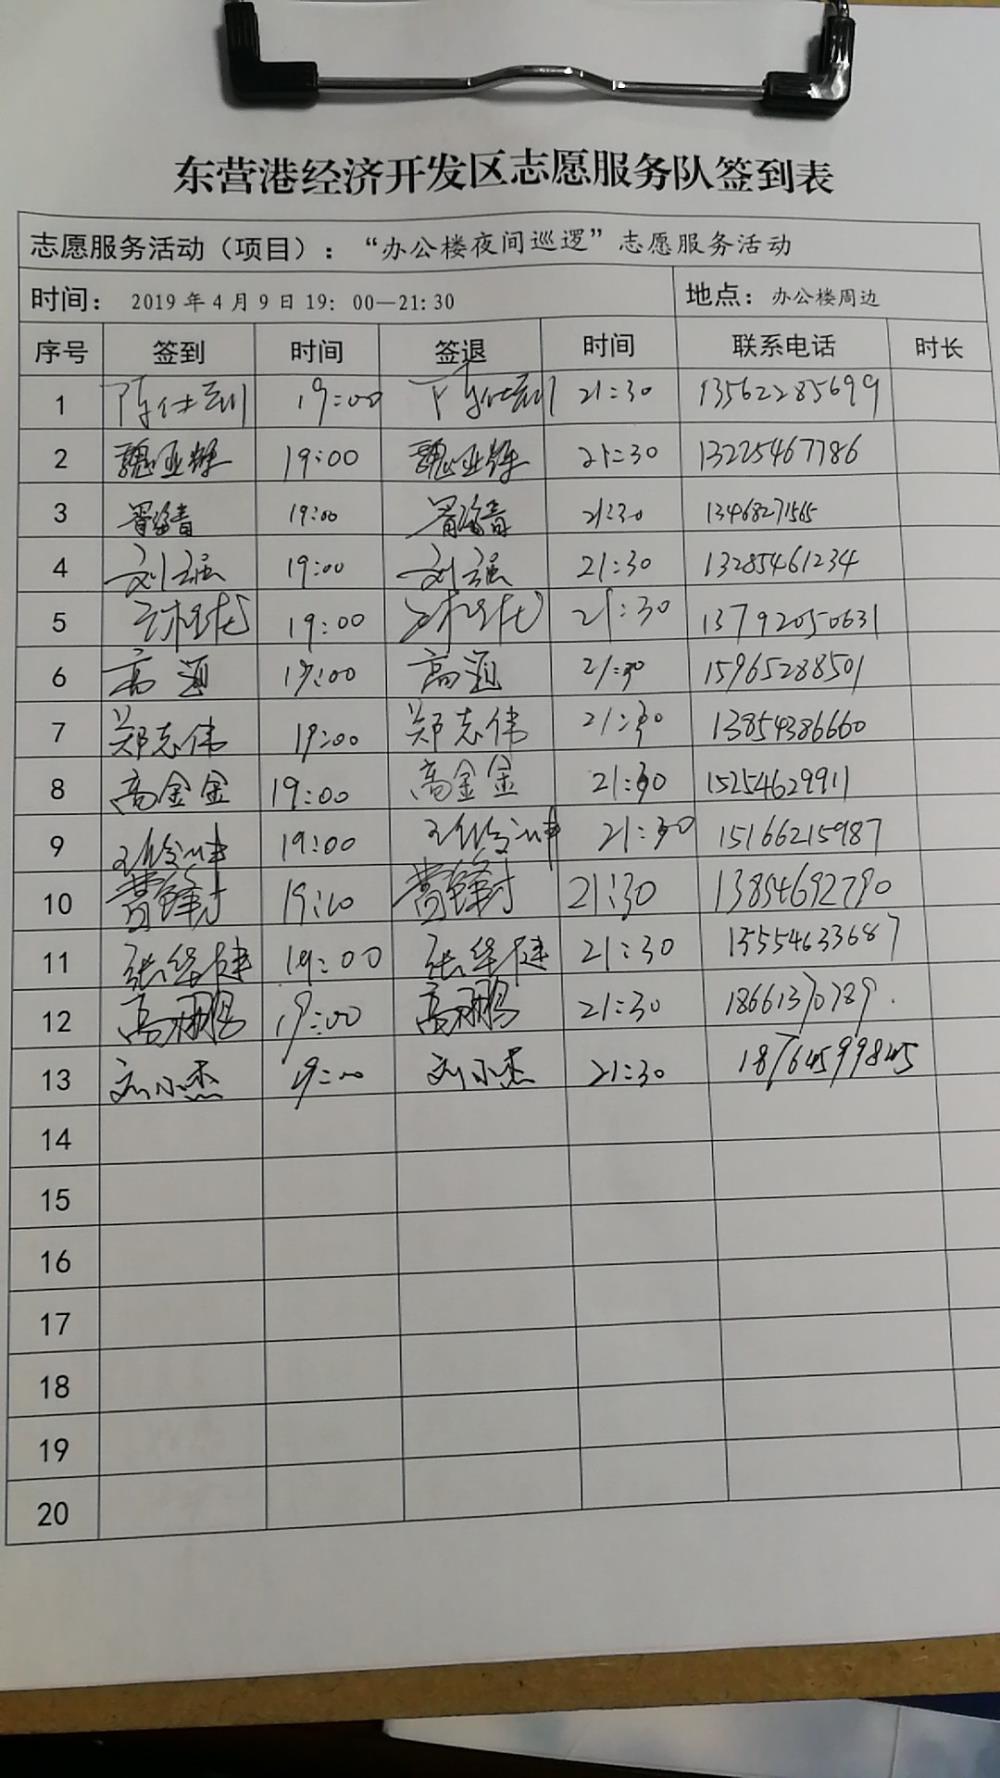 东营港经济开发区志愿服务队签到表
志愿服务活动（项目）：“办公楼夜间巡逻”志愿服务活动
时间： 2019年4月9日19：00—21：30 地点：办公楼周边
序号 签到 时间 签退 时间 联系电话 时长
1 19:00 21:30 13562285699
2 19:00 21:30 13225467786
3 19:00 21:30 13468271565
4 刘强 19:00 刘强 21:30 13285461234
5 19:00 21:30 13792050631
6 高 19:00 高 21:30 15965288501
7 郑志伟 19:00 郑志伟 21:30 13854386660
8 高金金 19:00 高金金 21:30 15254629911
9 19:00 21:30 15166215987
10 21:30 13854692790
11 张华健 19:00 张华健 21:30 13554633687
12 高鹏 19:00 高鹏 21:30 18661370789.
13 刘小杰 19:00 刘小杰 21:30
14
15
16
17
18
19
20